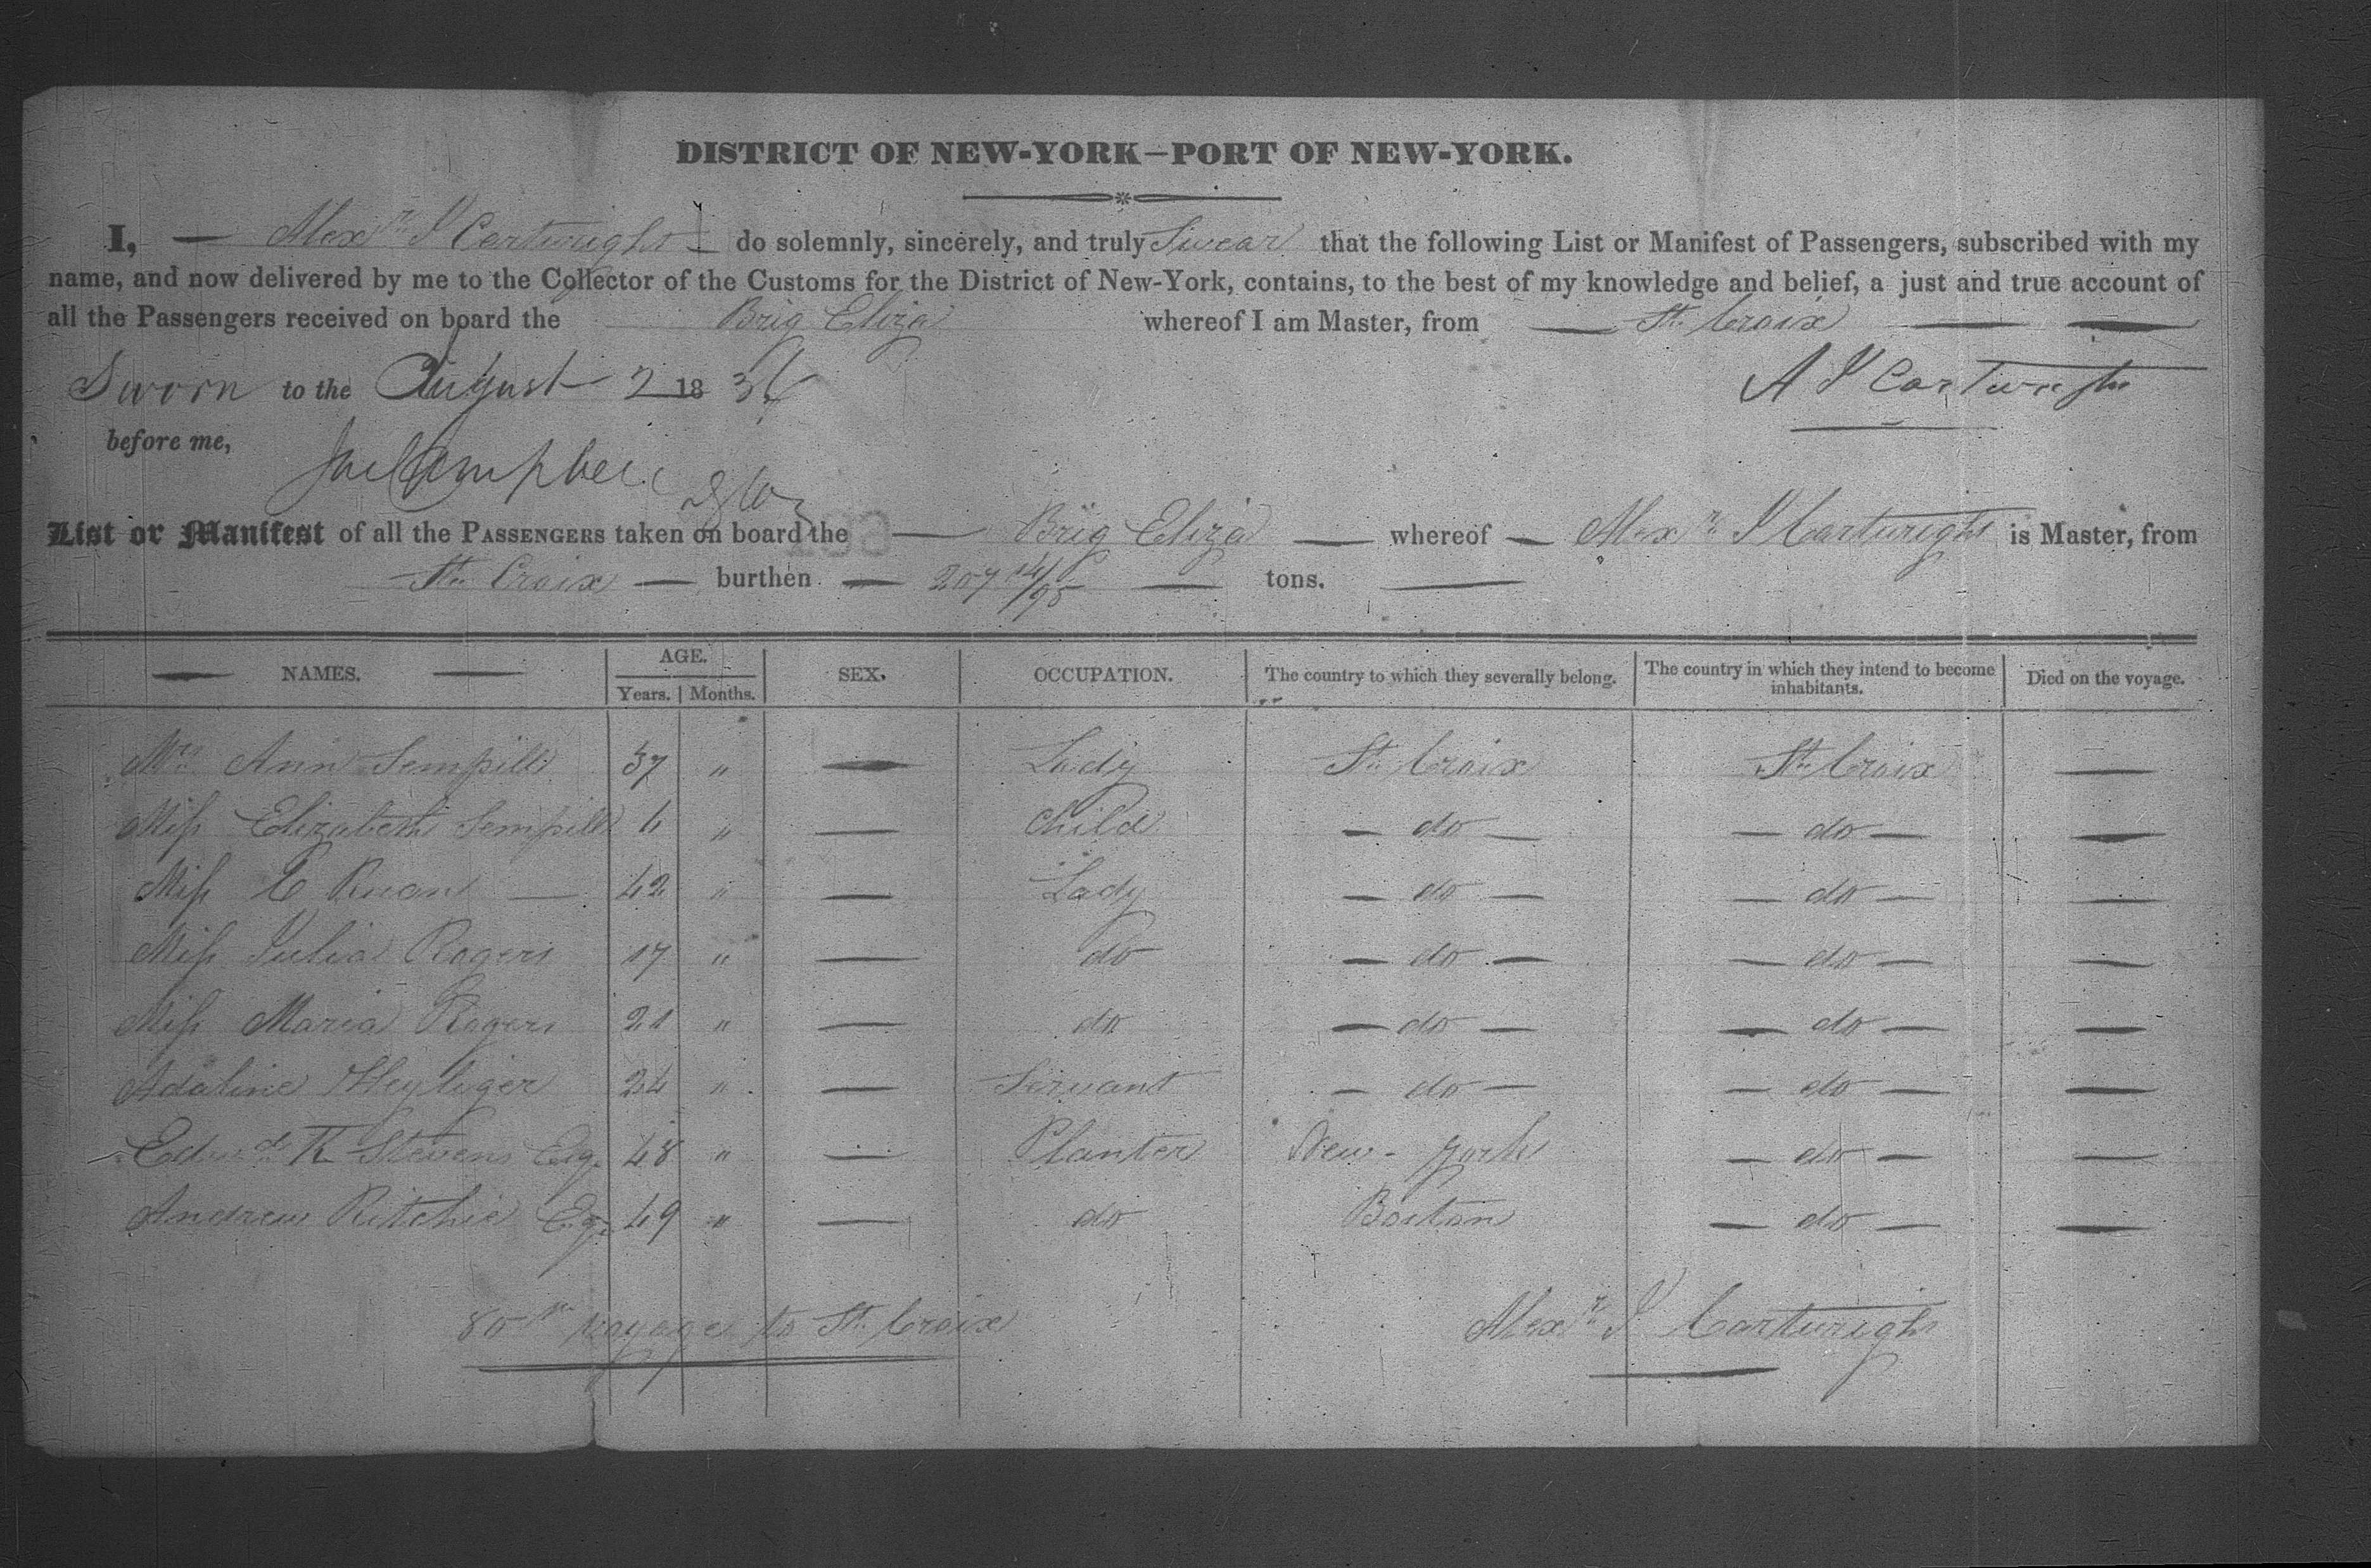 DISTRICT OF NEW-YORK—PORT OF NEW-YORK.
I, — Alexr J Cartwright do solemnly, sincerely, and truly Swear that the following List or Manifest of Passengers, subscribed with my
name, and now delivered by me to the Collector of the Customs for the District of New-York, contains, to the best of my knowledge and belief, a just and true account of
all the Passengers received on board the Brig Eliza whereof I am Master, from — St. Croix — —
Sworn to the August 2 18 36 A J Cartwright
before me,
List or Manifest of all the PASSENGERS taken on board the — Brig Eliza — whereof — Alexr J Cartwright is Master, from
St. Croix — burthen — 207 14/95 — tons. —
— NAMES. — AGE. Years. Months. SEX. OCCUPATION. The country to which they severally belong. The country in which they intend to become inhabitants. Died on the voyage.
Mrs. Ann Sempill 37 " — Lady St. Croix St. Croix —
Miss Elizabeth Sempill " — Child — do — — do — —
Miss C Ruan — 42 " — Lady — do — — do — —
Miss Julia Rogers 17 " — do — do — — do — —
Miss Maria Rogers 21 " — do — do — — do — —
Adaline Heyliger 24 " — Servant — do — — do — —
Edwd. K Stevens Esq. 48 " — Planter New-york — do — —
Andrew Ritchie Esq. 49 " — do Boston — do — —
80th voyage to St. Croix Alexr J Cartwright